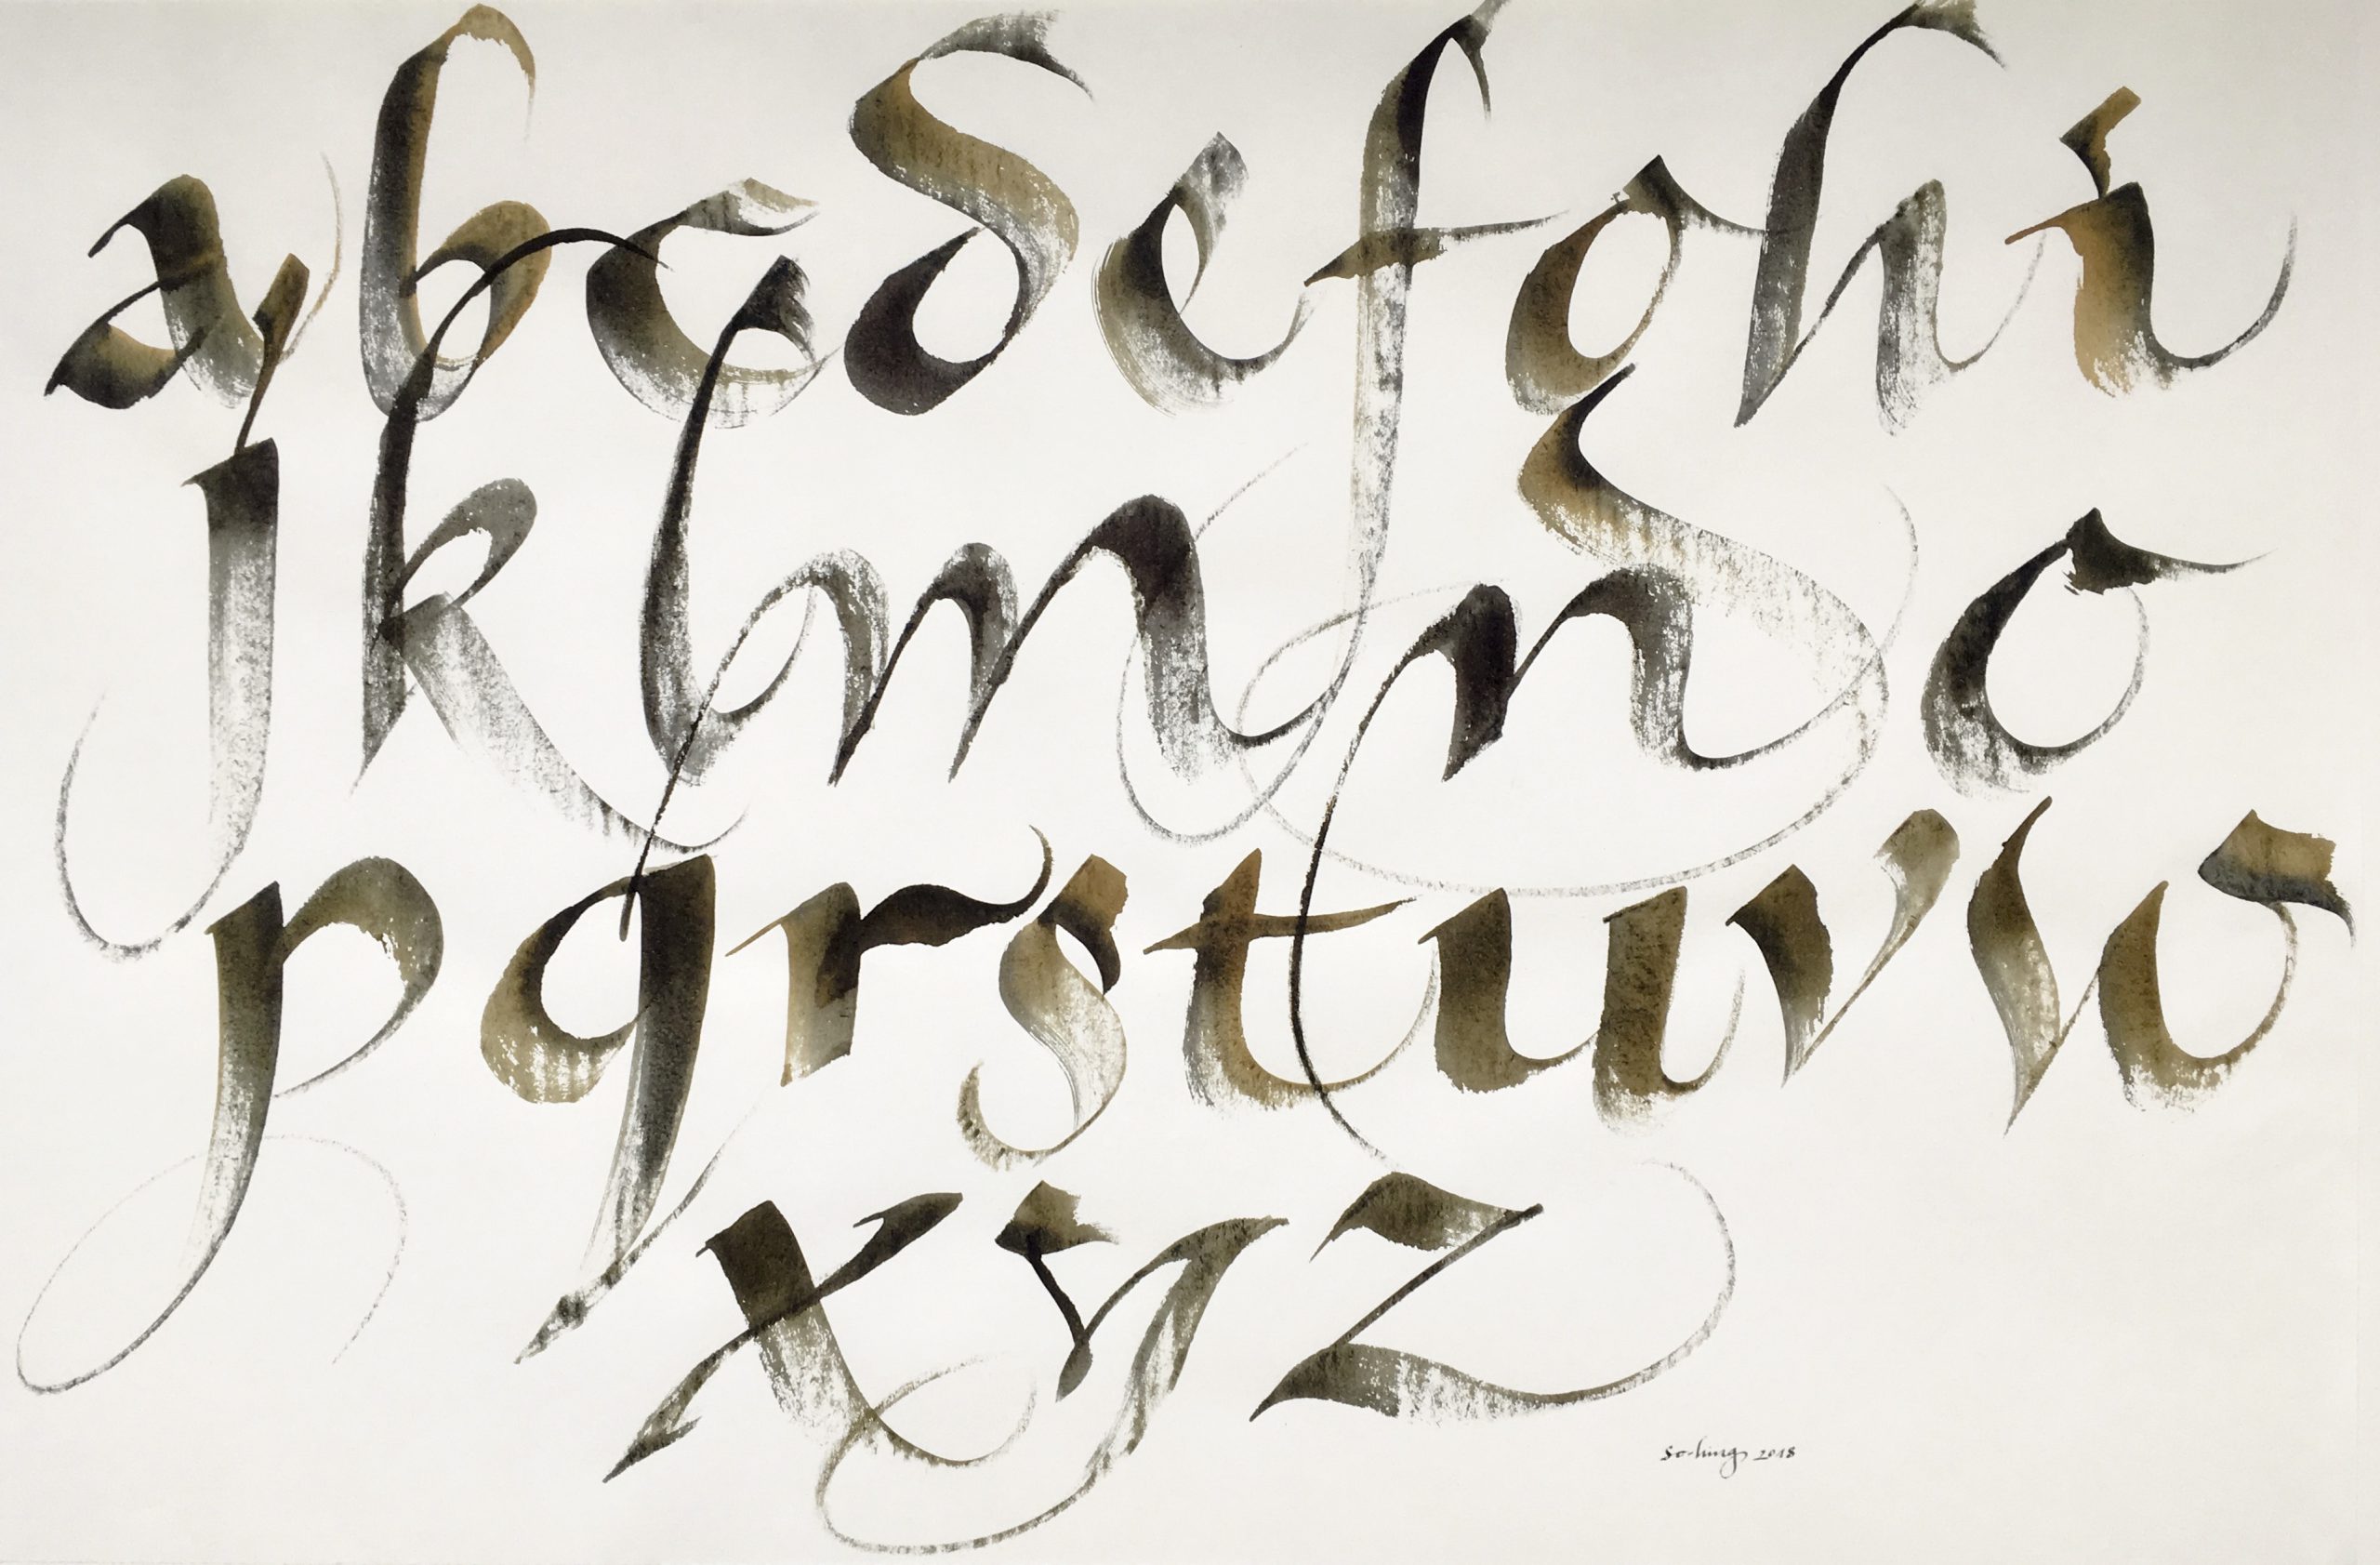 abcdefghi
jklmno
pqrstuvw
xyz
So-hing 2018